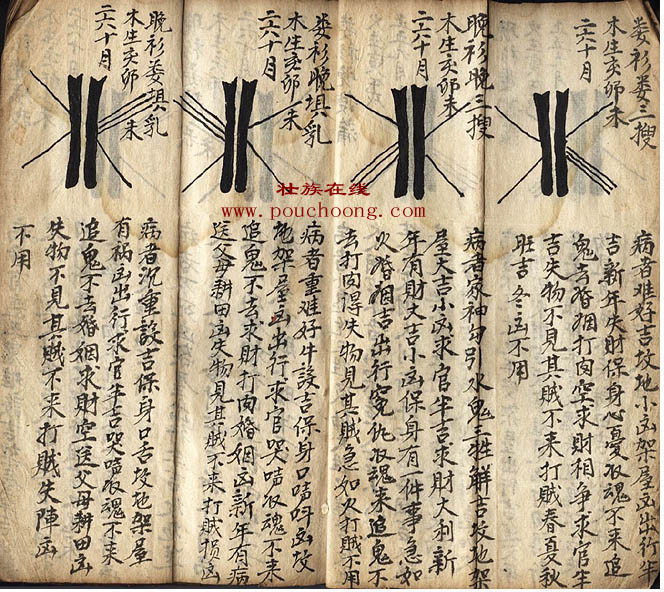 娄衫娄三搜
木生亥卯未
六十月
病者难好吉坟地小凶架屋凶出行半
吉新年失财保身心憂收魂不来追
鬼吉婚姻打肉空求财相争求官半
吉失物不見其贼不来打贼春憂秋
旺吉冬凶不用
晚衫晚三搜
木生亥卯未
六十月
病者家神勾引水鬼三牲解吉坟地架
屋大吉小凶求官半吉求財大利新
年有財丈吉小凶保身有一件事急如
火婚姻吉出行冤仇收魂来追鬼不
去打肉得失物見其贼急如火打贼不用
娄衫晚埧乳
木生亥卯未
六十月
病者重难好牛設吉保身口啨呌凶坟
地架屋凶出行求官哭啨收魂不来
追鬼不去求财打肉婚姻凶新年有病
送父母耕田凶失物不見其贼不来打贼损凶
晚衫娄埧乳
木生亥卯未
六十月
病者沉重設吉保身口舌坟地架屋
有禍凶出行求官半吉哭啨收魂不来
追鬼不去婚姻求財空送父母耕田凶
失物不見其贼不来打贼失陣凶
不用
壮族在线
www.pouchoong.com